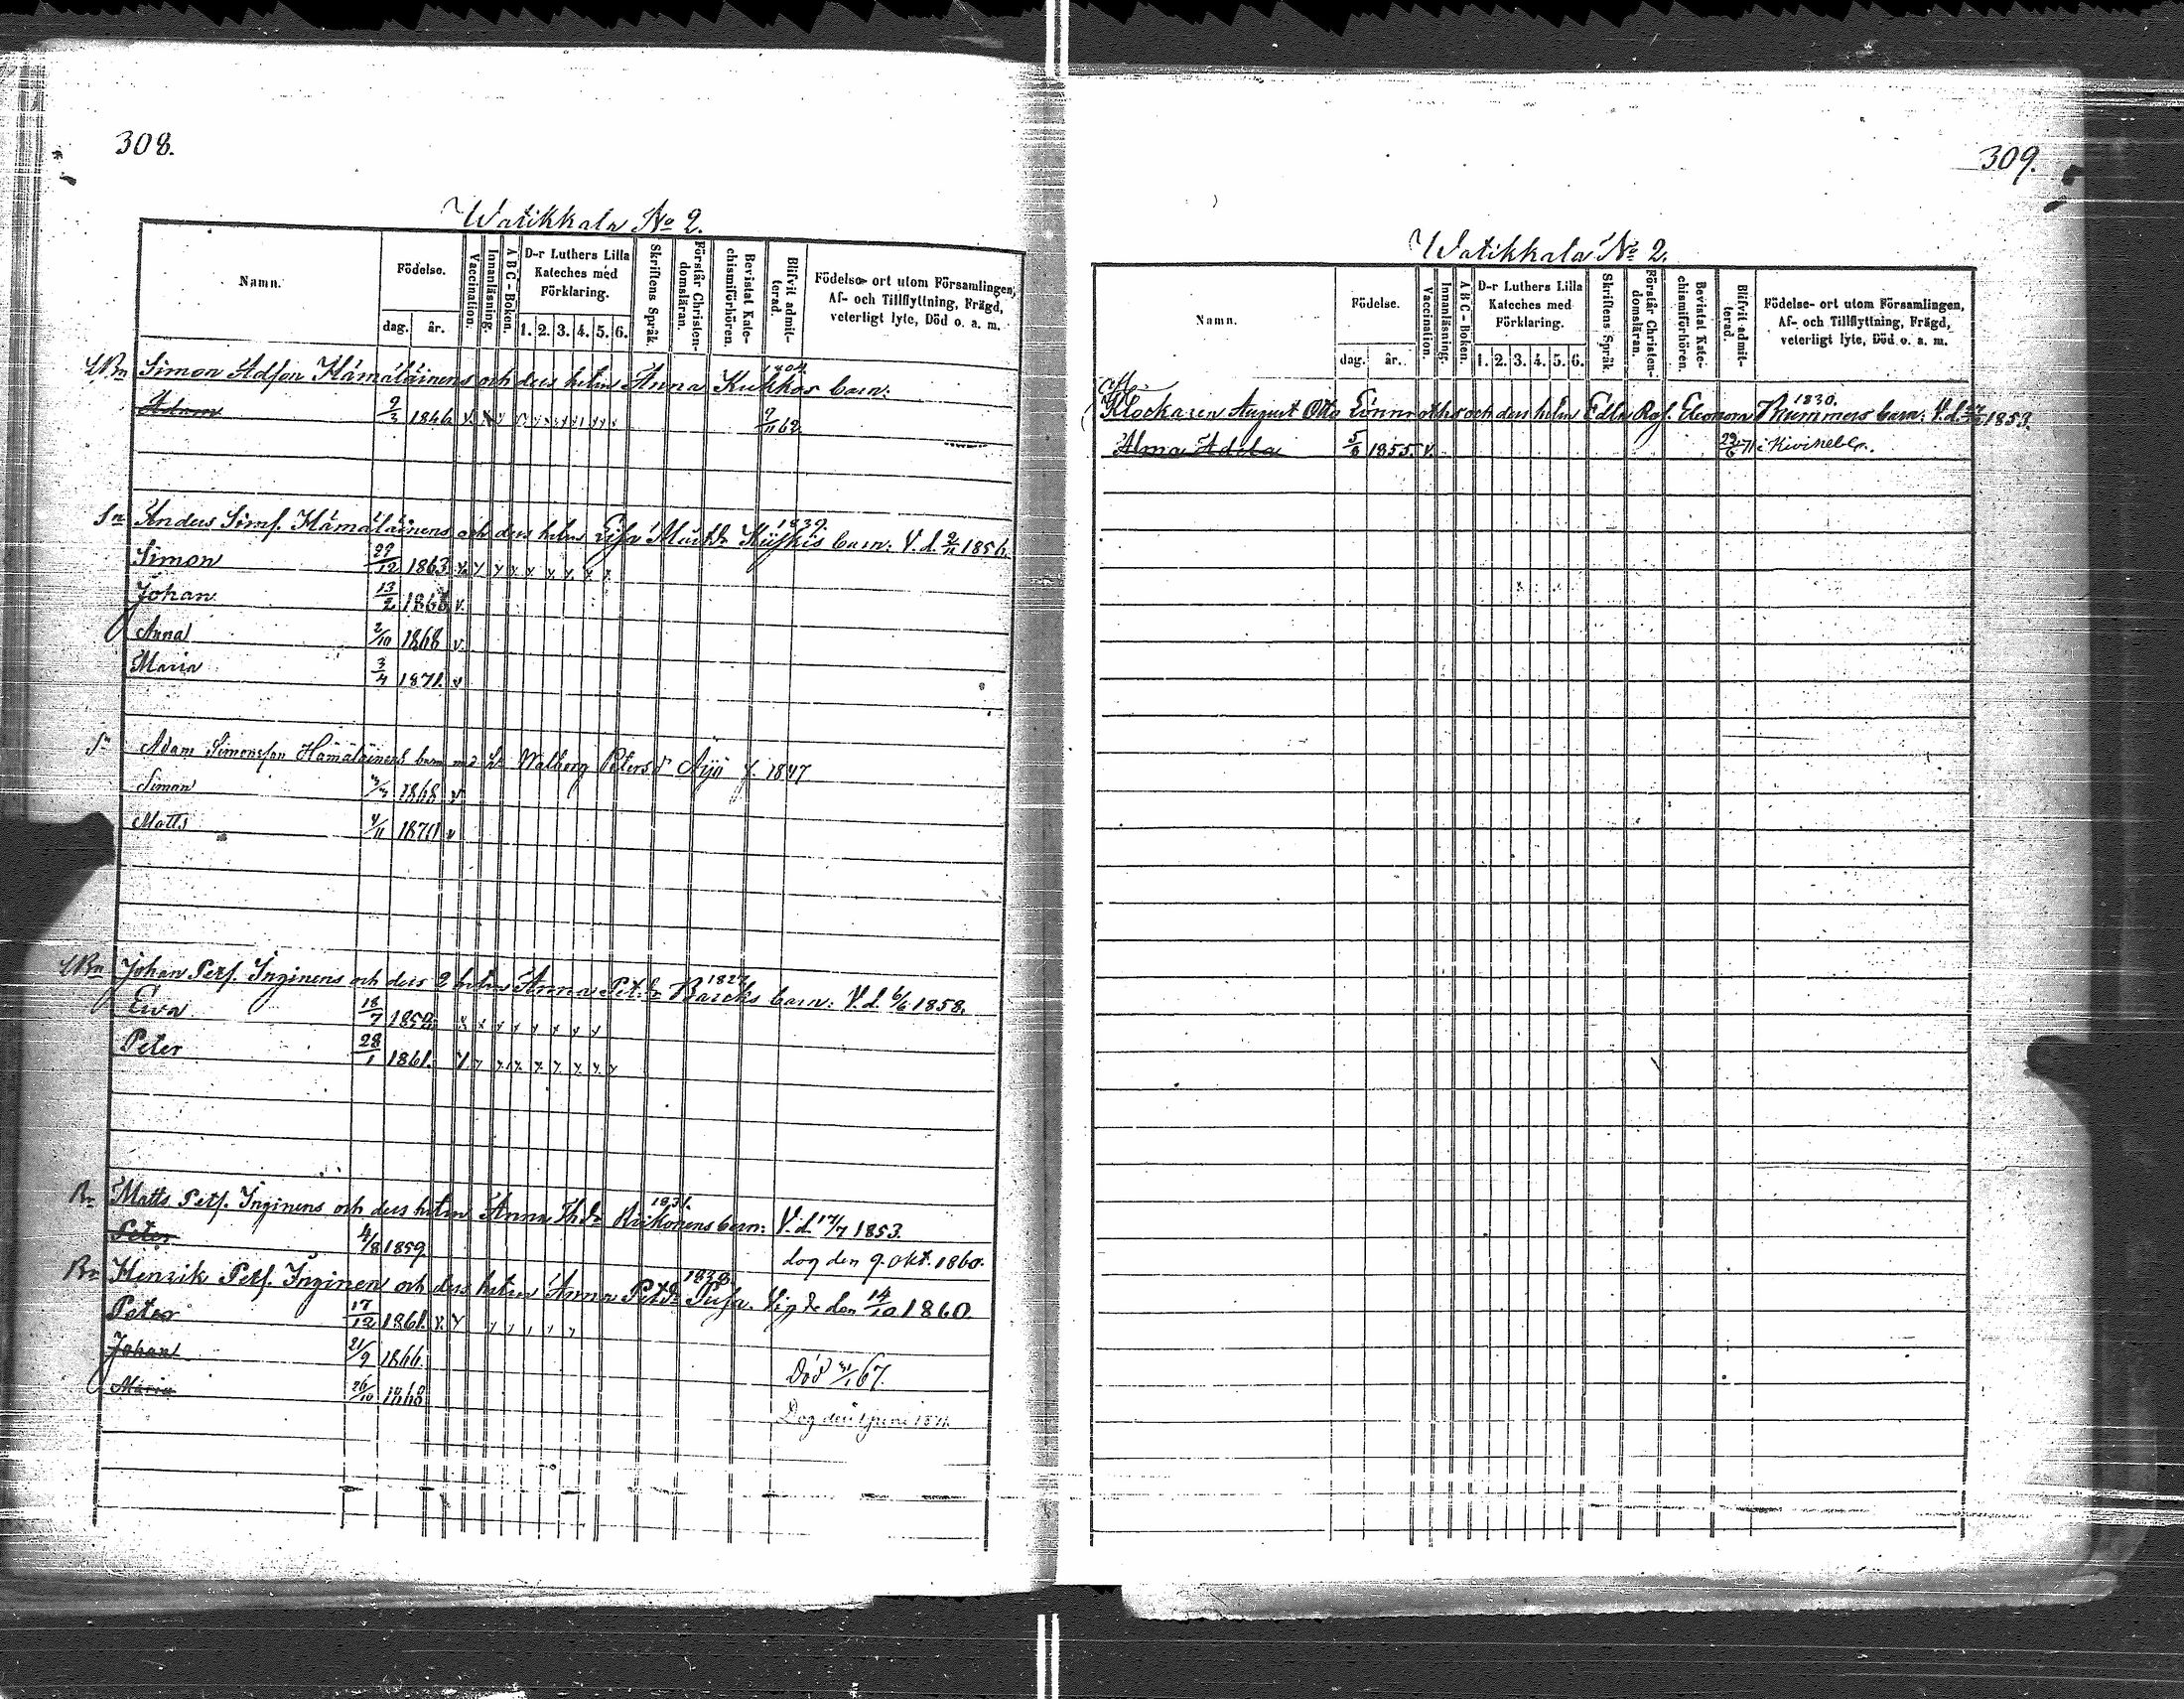 308.
Watikkala No 2.
Namn.
Födelse.
dag.
år.
Vaccination.
Innanläsning.
ABC-Boken.
D-r Luthers Lilla
Kateches med
Förklaring.
1. 2. 3. 4. 5. 6.
Skriftens Språk.
Förstår Christen-
domsläran.
Bevistat Kate-
chismiförhören.
Blifvit admit-
terad.
Födelse- ort utom Församlingen,
Af- och Tillflyttning, Frägd,
veterligt lyte, Död o. a. m.
1804.
Simon Adson Hämäläinens och dess hstru Anna Kukkos barn:
Adam 9/3 1846 9/11 62
1839.
Sn Anders Sims. Hämäläinens och dess hstru Matsdr barn: V.d. 2/11 1856.
Simon 29/12 1863
Johan 13/2 v.
Anna 2/10 1868 v.
Maria 3/4 1871. v
Sn Adam Simonsson Hämäläinens barn med Walborg Petersdr Äijö f. 1847
Simon 1868 v
Matts 4/11 1870 v
Johan Pets. Inginens och dess 2 hstru Anna Petdr Barcks barn: V.d. 6/6 1858.
Ewa 18/7 1859
Peter 28/1 1861.
1831.
Br Matts Pets. Inginens och dess hstru Anna Thdr Riikonens barn: V.d. 17/7 1853.
Peter 4/8 1859. dog den 9. okt. 1860.
1838.
Br Henrik Pets. Inginen och dess hstru Anna Petdr Pusa. Vigde den 14/10 1860.
Peter 17/12 1861.
Johan 21/9 1866. Död 31/1 67.
Maria 26/10 1868 Dog den 1 juni 1871.
309.
Watikkala No 2.
Namn.
Födelse.
dag.
år.
Vaccination.
Innanläsning.
ABC-Boken.
D-r Luthers Lilla
Kateches med
Förklaring.
1. 2. 3. 4. 5. 6.
Skriftens Språk.
Förstår Christen-
domsläran.
Bevistat Kate-
chismiförhören.
Blifvit admit-
terad.
Födelse- ort utom Församlingen,
Af- och Tillflyttning, Frägd,
veterligt lyte, Död o. a. m.
1830.
Klockaren August Otto Lönnroths och dess hstru Edla Eleonora Brummers barn: V.d. 1853.
Alma Adela 5/8 1855. v. 29/6 71 i Kivinebb.